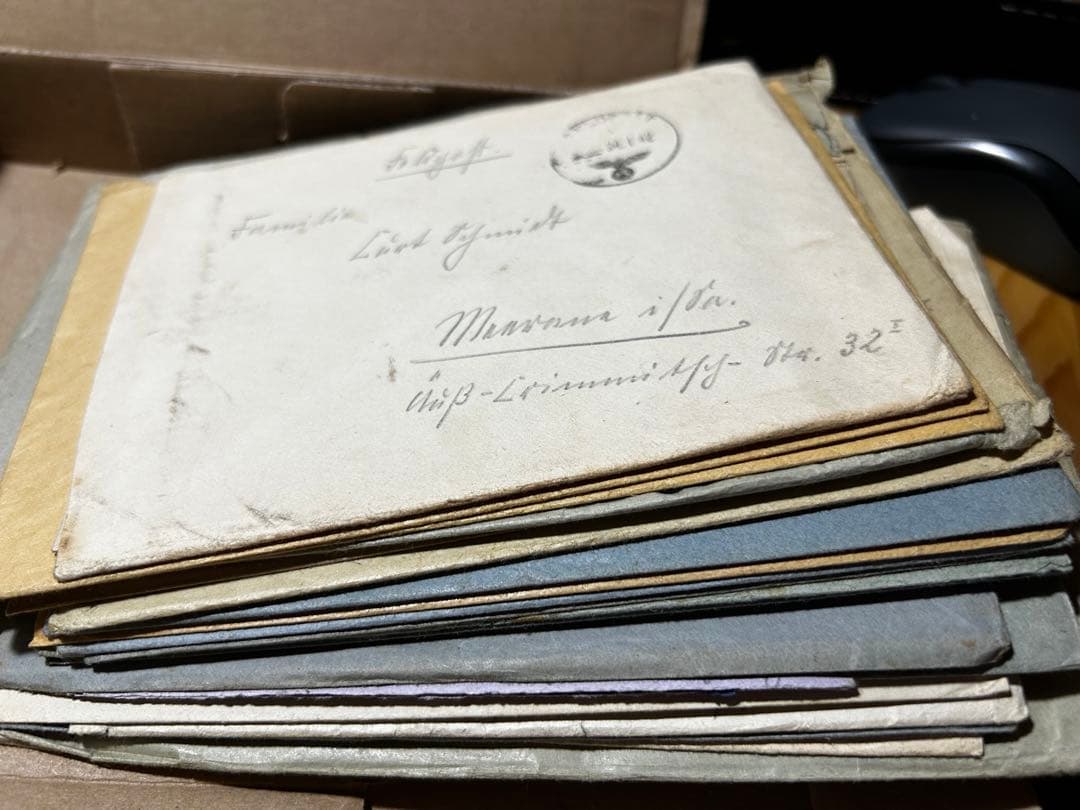 Feldpost
Familie
Curt Schmidt
Meerane i/Sa.
Äuß-Crimmitsch- Str. 32 I